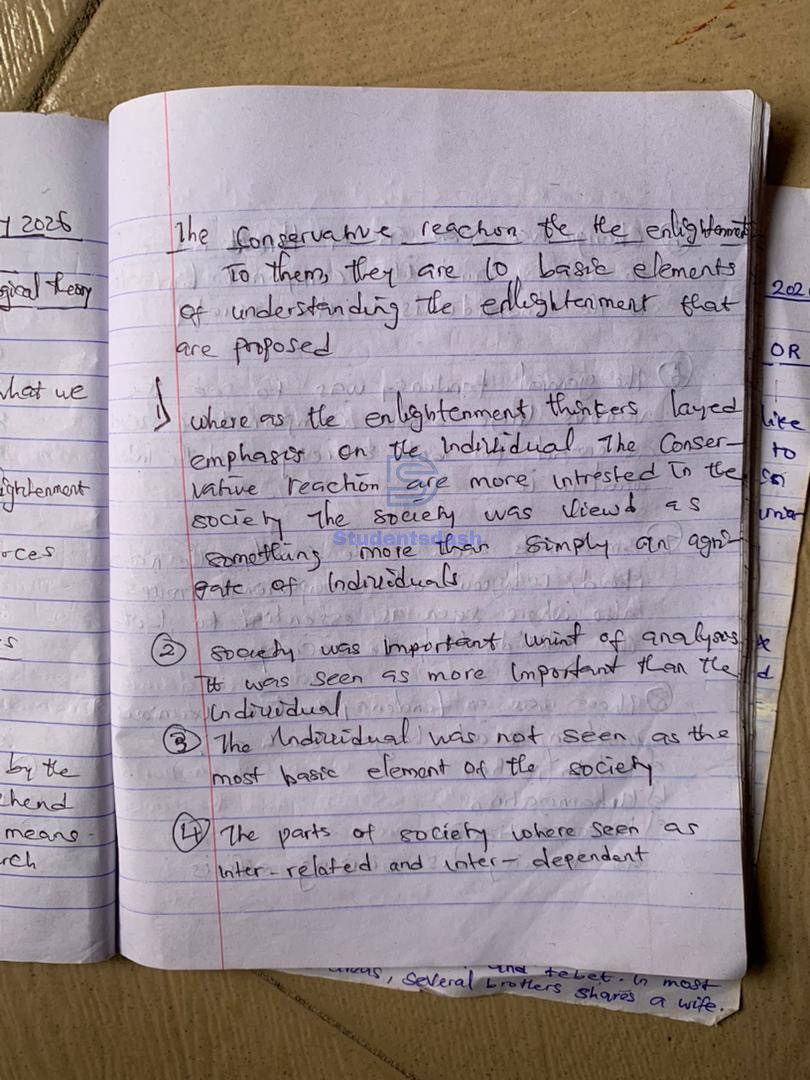 y 2026
gical theory
what we
ightenment
rces
s
by the
hend
means
rch
The Conservative reaction the the enlightenment
To them, they are 10 basic elements
of understanding the enlightenment that
are proposed
1) where as the enlightenment thinkers layed
emphasis on the Individual The Conser-
vative reaction are more intrested In the
society The society was viewd as
somothing more than simply an agri-
gate of Individuals
Studentsdash
② society was important unint of analyses
It was seen as more Important than the
Individual
③ The Individual was not seen as the
most basic element of the society
④ The parts of society where seen as
inter-related and inter-dependent
202
OR
like
to
d
and tebet. In most
areas, several brothers shares a wife.